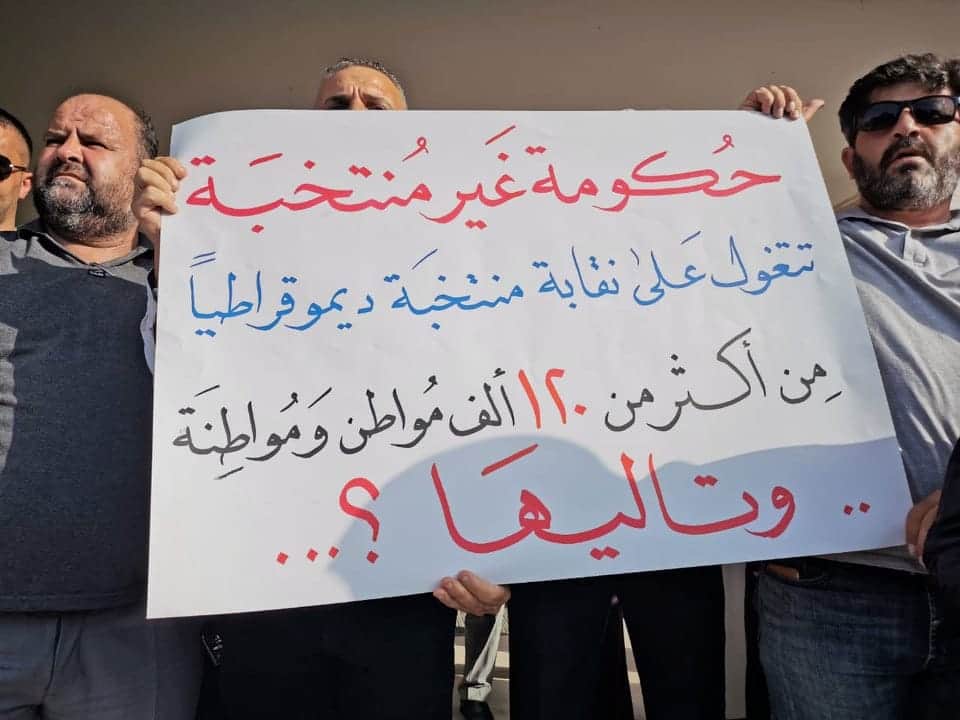 حُكومة غَير مُنتخبَة
تتغول عَلىٰ نقابة منتخبَة ديموقراطياً
مِن أكثر من ١٢٠ ألف مُواطن وَمُواطِنَة
.. وتاليهَا ؟...